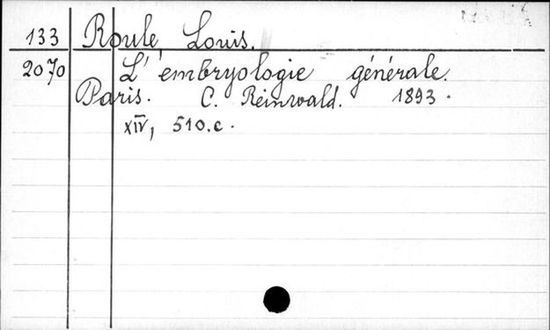 133 Roule, Louis.
2070 L'embryologie générale.
Paris. C. Reinwald. 1893.
XIV, 510.c.